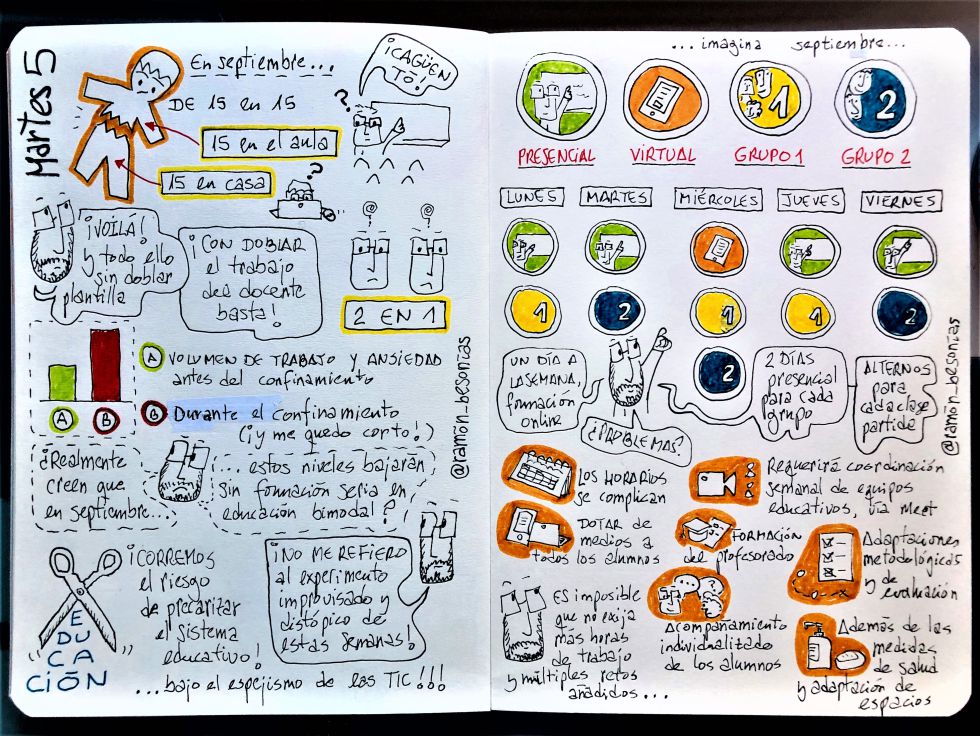 Martes 5
En septiembre...
DE 15 en 15
15 en el aula
15 en casa
¡CAGÜEN
TÓ!
?
?
¡VOILÁ!
y todo ello
sin doblar
plantilla
¡CON DOBLAR
el trabajo
del docente
basta!
2 EN 1
A B
A VOLUMEN DE TRABAJO Y ANSIEDAD
antes del confinamiento
B Durante el confinamiento
(¡y me quedo corto!)
@ramón_besonías
¿Realmente
creen que
en septiembre...
... estos niveles bajarán,
sin formación seria en
educación bimodal?
EDUCACIÓN
¡CORREMOS
el riesgo
de precarizar
el sistema
educativo!
¡NO ME REFIERO
al experimento
improvisado y
distópico de
estas semanas!
...bajo el espejismo de las TIC!!!
...imagina septiembre...
1 2
PRESENCIAL VIRTUAL GRUPO 1 GRUPO 2
LUNES MARTES MIÉRCOLES JUEVES VIERNES
1 2 1 1 2
2
UN DÍA A
LA SEMANA,
formación
online
¿PROBLEMAS?
2 DÍAS
presencial
para cada
grupo
ALTERNOS
para
cada clase
partida
@ramón_besonías
LOS HORARIOS
se complican
Requerirá coordinación
semanal de equipos
educativos, vía meet
DOTAR DE
medios a
todos los alumnos
FORMACIÓN
del profesorado
Adaptaciones
metodológicas
y de
evaluación
ES imposible
que no exija
más horas
de trabajo
y múltiples retos
añadidos...
Acompañamiento
individualizado
de los alumnos
Además de las
medidas
de salud
y adaptación de
espacios